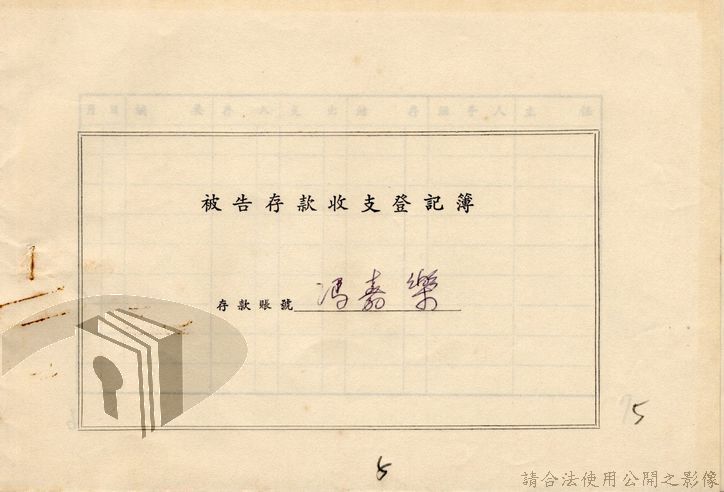 被告存款收支登記簿
存款賬號 馮嘉樂
5
5
請合法使用公開之影像